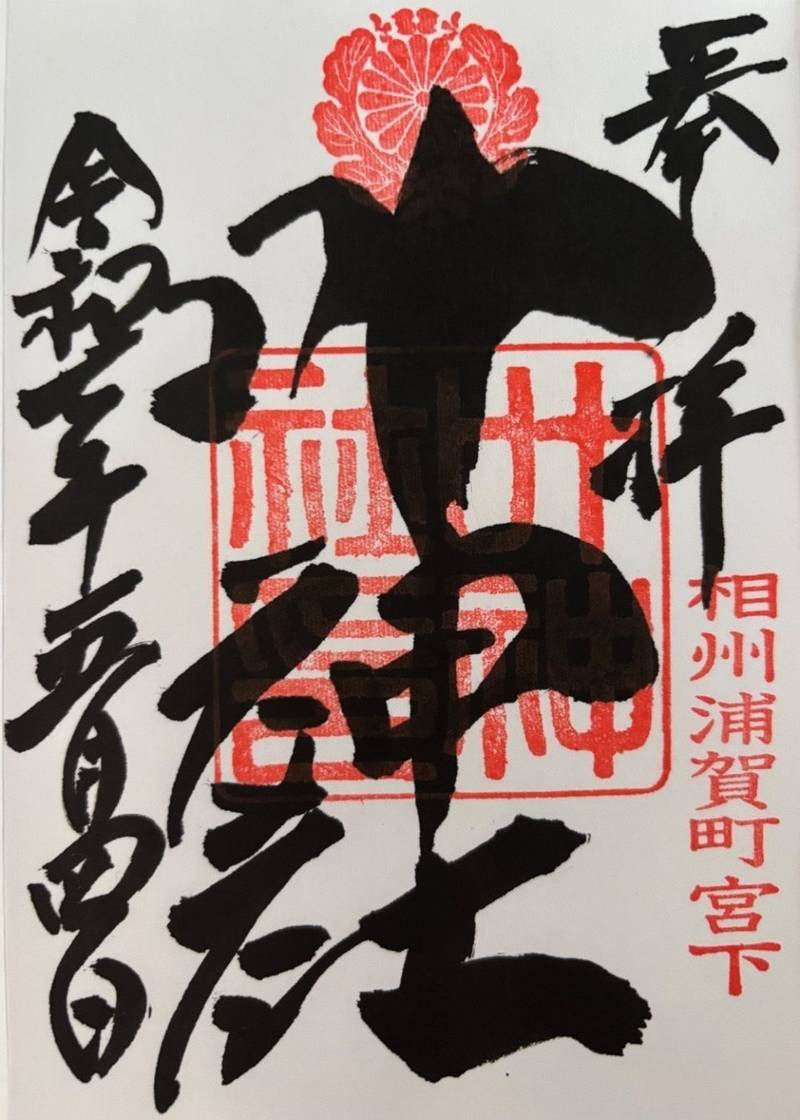 奉拝
相州浦賀町宮下
叶神社
叶神
令和七年五月四日